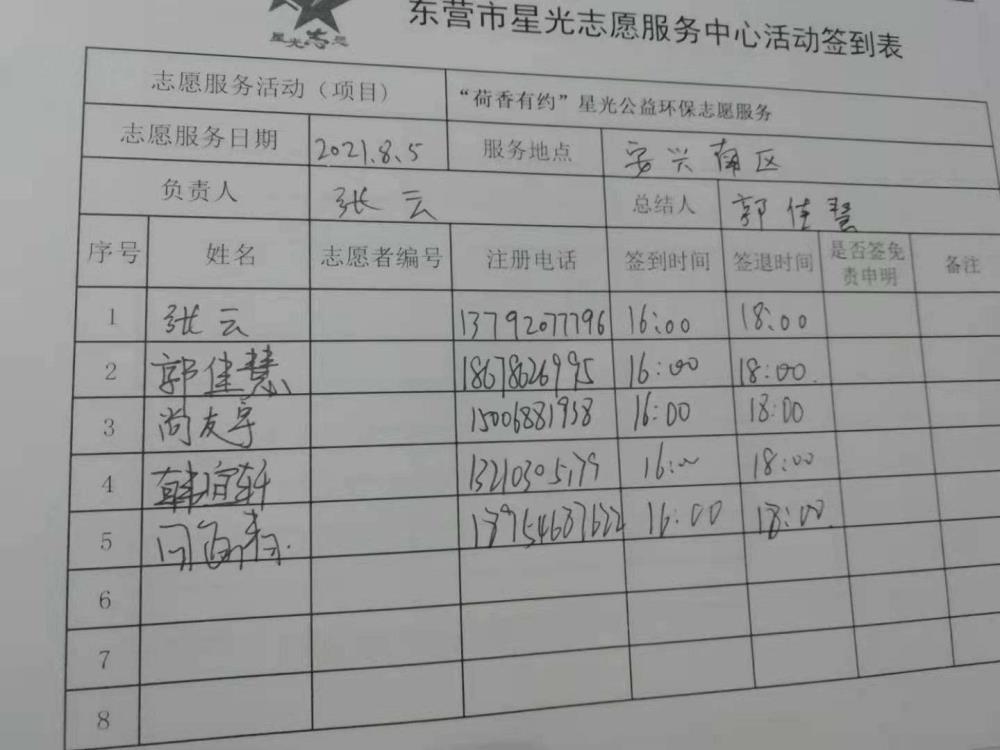 星光志愿
东营市星光志愿服务中心活动签到表
志愿服务活动（项目） “荷香有约”星光公益环保志愿服务
志愿服务日期 2021.8.5 服务地点 安兴南区
负责人 张云 总结人 郭佳慧
序号 姓名 志愿者编号 注册电话 签到时间 签退时间 是否签免责申明 备注
1 张云 13792077796 16:00 18:00
2 郭佳慧 18678626995 16:00 18:00
3 尚友宇 15006881938 16:00 18:00
4 韩宜轩 13210305179 16:00 18:00
5 16:00 18:00
6
7
8